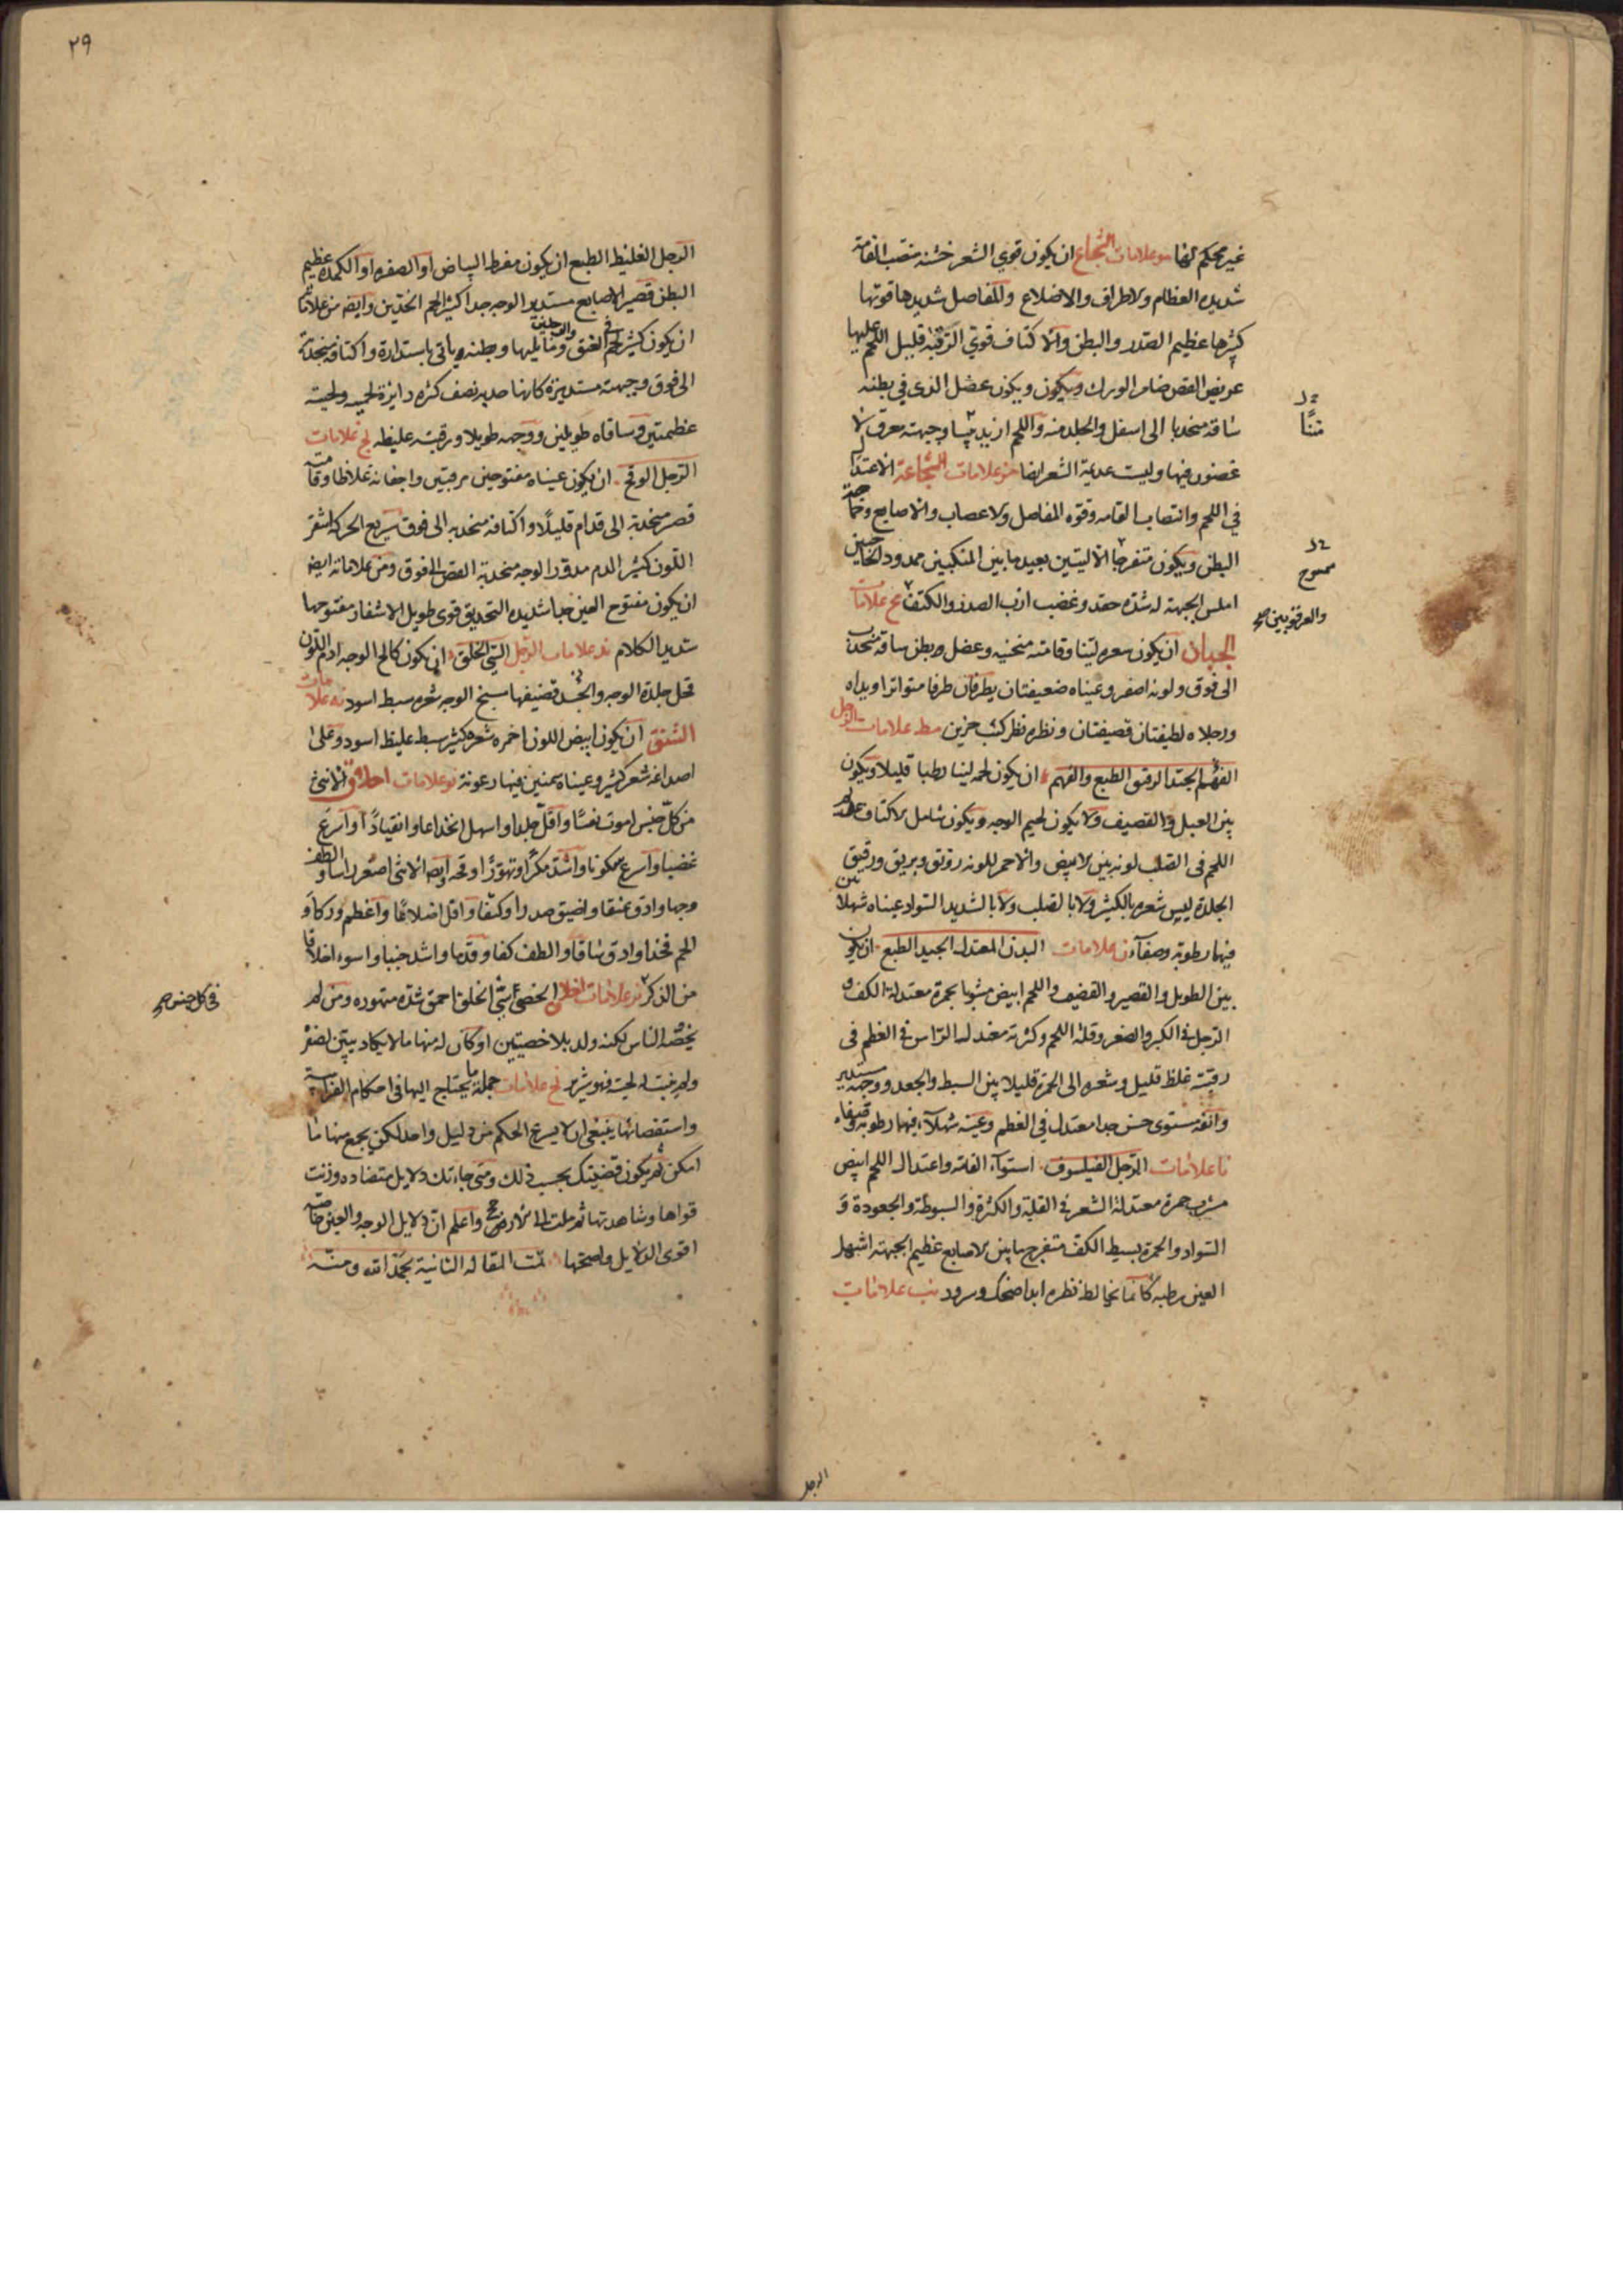 غير محكم لها مو علامات الشجاع ان يكون قوي الشعر خشنه منتصب القامة
شديده العظام والاطراف والاضلاع والمفاصل شديدها قويها
كبيرها عظيم الصدر والبطن والاكتاف قوي الرقبة قليل اللحم عليها
عريض القص ضامر الورك ويكون عضل الذي في بطنه
ساقه منحدبا الى اسفل والجلد منه واللحم ازيد يبسا وجبهته معرق لا
غضون فيها وليست عديمة الشعر ايضا مز علامات الشجاعة الاعتدال
في اللحم وانتصاب القامه وقوه المفاصل والاعصاب والاصابع وخماصة
البطن ويكون متفرجا الاليتين بعيد ما بين المنكبين ممدود الحاجبين
املس الجبهة له شده حقد وغضب ازب الصدر والكتف مح علامات
الجبان ان يكون شعره لينا وقامته منحنيه وعضل بطن ساقه منجذب
الى فوق ولونه اصفر وعيناه ضعيفتان يطرفان طرفا متواترا ويداه
ورجلاه لطيفتان قضيفتان ونظره نظر كئب حزين مط علامات الرجل
الفهم الجيد الرقيق الطبع والفهم ان يكون لحمه لينا رطبا قليلا ويكون
بين العبل والقضيف ولا يكون لحيم الوجه ويكون شامل الاكتاف عديم
اللحم في القلب لونه بين الابيض والاحمر للونه رونق وبريق ورقيق
الجلدة ليس شعره بالكثير ولا بالصلب ولا بالشديد السواد عيناه شهلائين
فيها رطوبة وصفاء ن علامات البدن المعتدل الجيد الطبع ان يكون
بين الطويل والقصير والقضيف واللحم ابيض مشوبا بحمرة معتدله الكف و
الرجل في الكبر والصغر وقلة اللحم وكثرته معتدله الراس في العظم في
رقبته غلظ قليل وشعره الى الحمرة قليلا بين السبط والجعد ووجهه مستدير
وانفه مستوي حسن جدا معتدل في العظم وعينه شهلاء فيها رطوبة وصفاء
نا علامات الرجل الفيلسوف استواء القامة واعتدال اللحم ابيض
مشرب حمرة معتدلة الشعر في القلة والكثرة والسبوطة والجعودة و
السواد والحمرة بسيط الكف متفرج ما بين الاصابع عظيم الجبهة اشهل
العين رطبه كانما يخالط نظره ابدا ضحك وسرور نب علامات
والعرقوبين صح
الرجل
٢٩
الرجل الغليظ الطبع ان يكون مفرط البياض او الصفره او الكمده عظيم
البطن قصير الاصابع مستدير الوجه جدا كثير لحم الخدين وايضا من علاماته
ان يكون كثير لحم العنق وما يليها وبطنه ياتي باستدارة واكتافه منجذبة
الى فوق وجبهته مستديرة كانها حدبه نصف كره دايرة لحييه ولحيته
عظيمتين وساقاه طويلين ووجهه طويلا ورقبته غليظه نج علامات
الرجل الوقح ان يكون عيناه مفتوحين مرقيتين واجفانه غلاظا وقامته
قصر منحدبة الى قدام قليلا واكتافه منجذبه الى فوق سريع الحركة اشقر
اللون كثير الدم مدور الوجه منجذبة القص الى فوق ومن علاماته ايضا
ان يكون مفتوح العين جدا شديده التحديق قوي طويل الاشفار مفتوحها
شديد الكلام ند علامات الرجل السيئ الخلق ان يكون كالح الوجه ادم اللون
قحل جلدة الوجه والجسد قضيفها سبخ الوجه شعره سبط اسود نه علامات
الشبق ان يكون ابيض اللون احمره شعره كثير سبط غليظ اسود وعلى
اصداغه شعر كثير وعيناه سمنين فيها رعونة نو علامات اخلاق الانثى
من كل جنس اموت نفسا واقل جلدا واسهل انخداعا وانقيادا او اسرع
غضبا واسرع سكونا واشد مكرا وتهورا وقحه ايضا الانثى اصغر راسا والطف
وجها وادق عنقا واضيق صدرا وكتفا واقل اضلاعا واعظم وركا و
الحم فخذا وادق ساقا والطف كفا وقدما واشد جنبا واسوء اخلاقا
من الذكر نز علامات اخلاق الخصي سيئ الخلق احمق شده متهوره ومن لم
يخصه الناس لكنه ولد بلا خصيتين او كان له منها ما لا يكاد يبين لصغر
ولم ينبت له لحية فهو شرير نح علامات جملة ما يحتاج اليها في احكام الفراسة
واستقصائها ينبغي ان لا يسرع الحكم من دليل واحد لكن يجمع منها ما
امكن ثم يكون قضيتك بحسب ذلك ومتى جاءتك دلايل متضاده وزنت
قواها وشاهدتها ثم ملت الى الارجح واعلم ان دلايل الوجه والعين خاصة
اقوى الدلايل واصحها تمت المقاله الثانية بحمد الله ومنه
في كل جنس صح